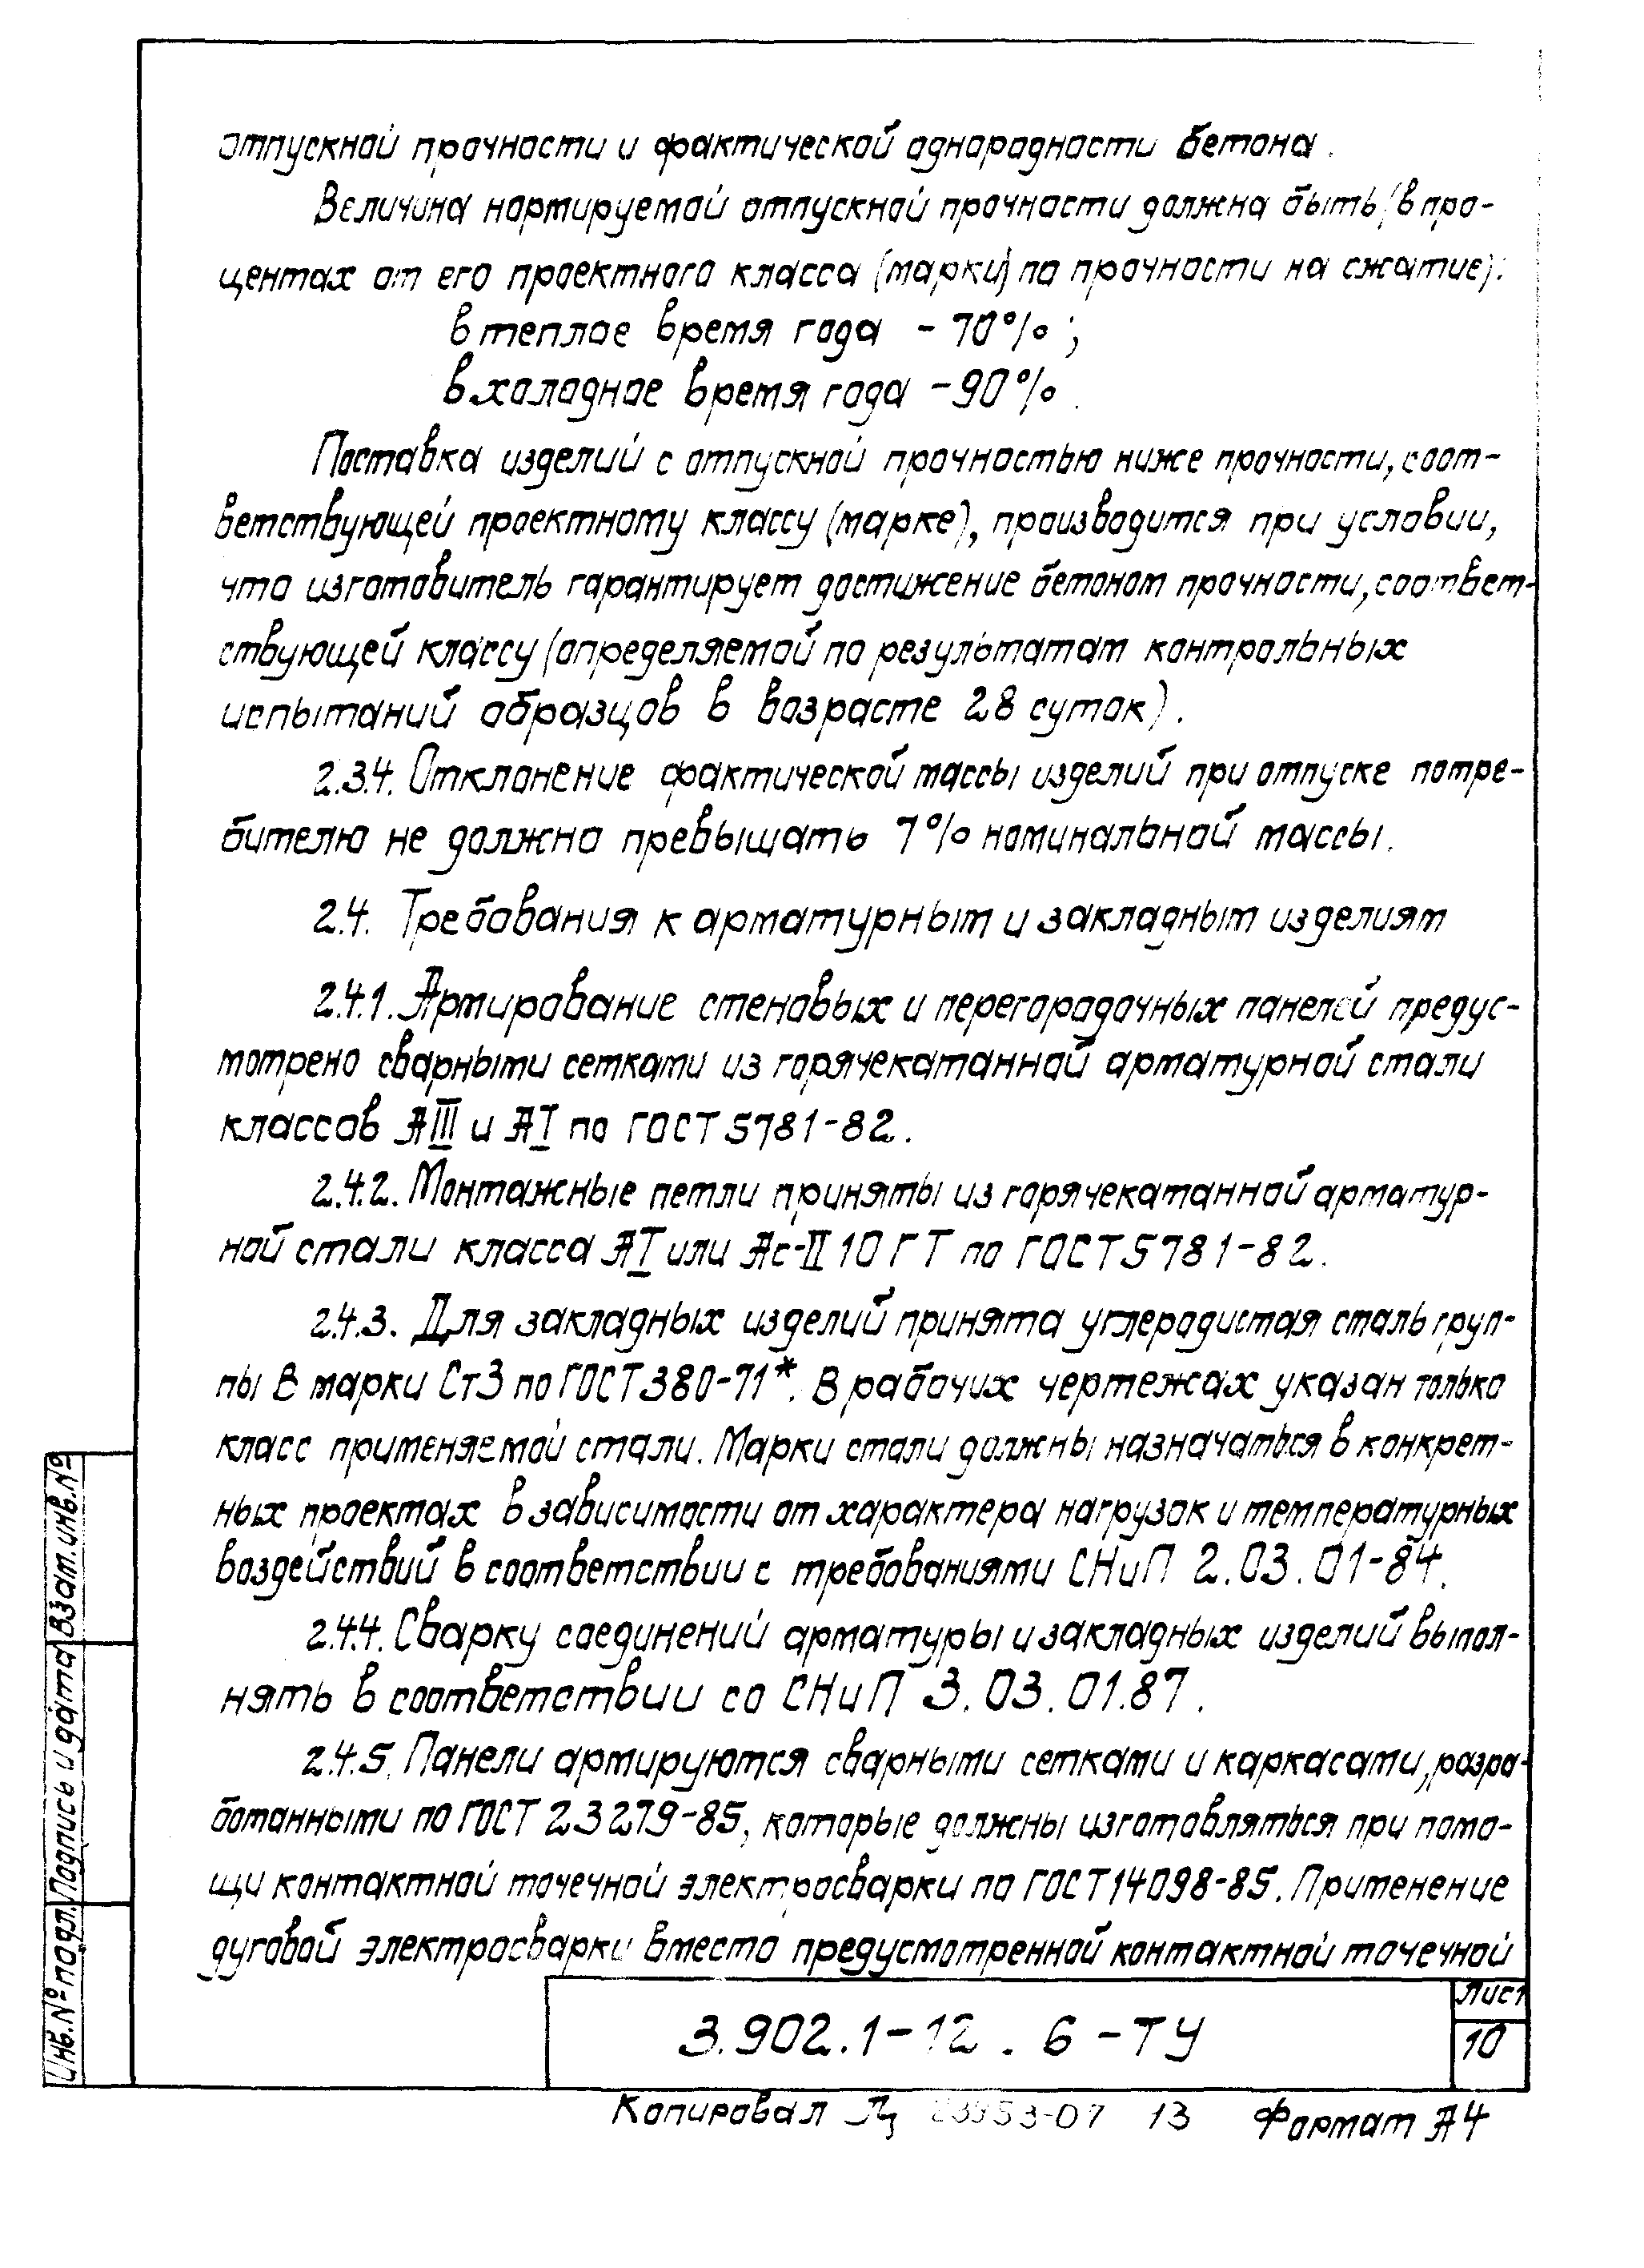 отпускной прочности и фактической однородности бетона.
Величина нормируемой отпускной прочности должна быть (в про-
центах от его проектного класса (марки) по прочности на сжатие):
в теплое время года - 70%;
в холодное время года - 90%.
Поставка изделий с отпускной прочностью ниже прочности, соот-
ветствующей проектному классу (марке), производится при условии,
что изготовитель гарантирует достижение бетоном прочности, соответ-
ствующей классу (определяемой по результатам контрольных
испытаний образцов в возрасте 28 суток).
2.3.4. Отклонение фактической массы изделий при отпуске потре-
бителю не должно превышать 7% номинальной массы.
2.4. Требования к арматурным и закладным изделиям
2.4.1. Армирование стеновых и перегородочных панелей предус-
мотрено сварными сетками из горячекатанной арматурной стали
классов АIII и АI по ГОСТ 5781-82.
2.4.2. Монтажные петли приняты из горячекатанной арматур-
ной стали класса АI или Ас-II 10 ГТ по ГОСТ 5781-82.
2.4.3. Для закладных изделий принята углеродистая сталь груп-
пы В марки Ст3 по ГОСТ 380-71*. В рабочих чертежах указан только
класс применяемой стали. Марки стали должны назначаться в конкрет-
ных проектах в зависимости от характера нагрузок и температурных
воздействий в соответствии с требованиями СНиП 2.03.01-84.
2.4.4. Сварку соединений арматуры и закладных изделий выпол-
нять в соответствии со СНиП 3.03.01.87.
2.4.5. Панели армируются сварными сетками и каркасами, разра-
ботанными по ГОСТ 23279-85, которые должны изготовляться при помо-
щи контактной точечной электросварки по ГОСТ 14098-85. Применение
дуговой электросварки вместо предусмотренной контактной точечной
Взам.инв.№
Подпись и дата
Инв.№ подл.
3.902.1-12.6-ТУ
Лист
10
Копировал 13 Формат А4